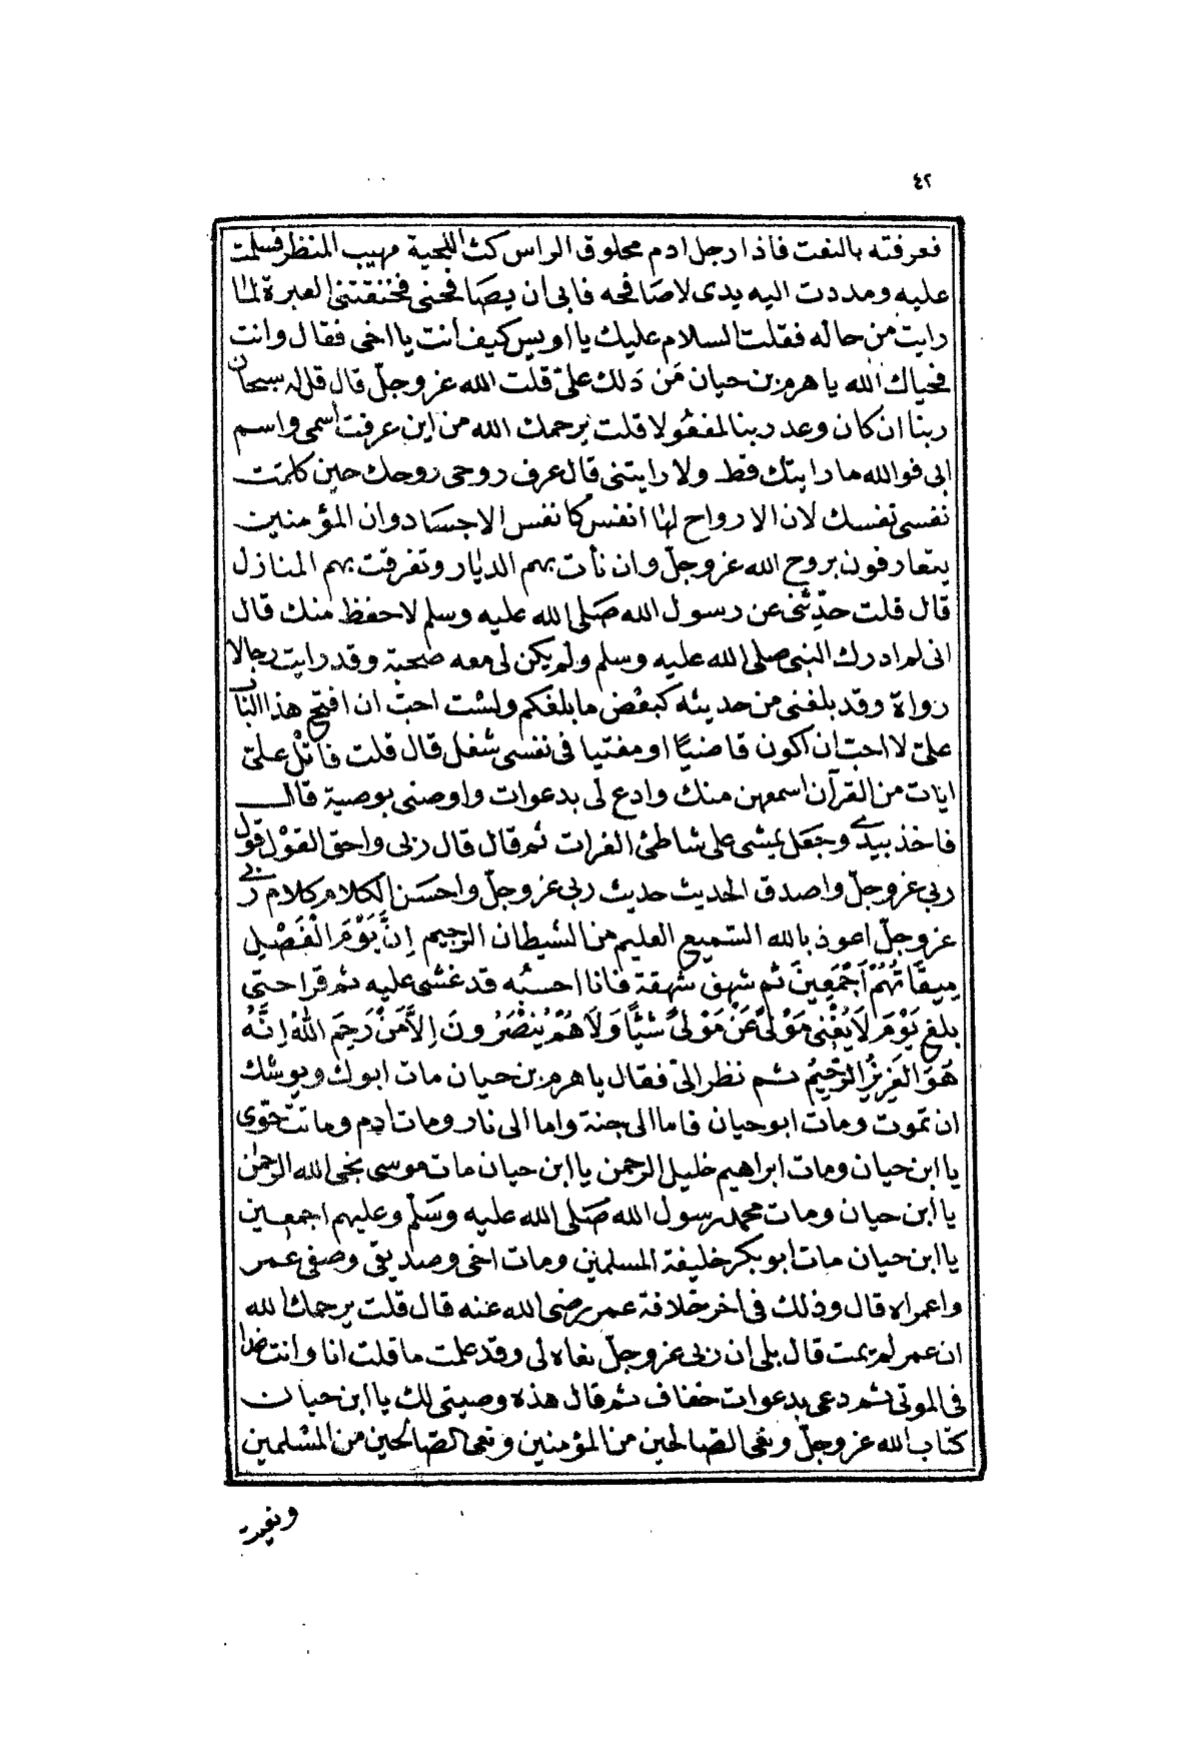 ٤٢
فعرفته بالنعت فاذا رجل ادم محلوق الراس كث اللحية مهيب المنظر فسلمت
عليه ومددت اليه يدى لاصافحه فابى ان يصافحنى فخنقتنى العبرة لما
رايت من حاله فقلت السلام عليك يا اويس كيف انت يا اخى فقال وانت
فحياك الله يا هرم بن حيان مَن دَلك علىّ قلت الله عز وجلّ قال قل له سبحان
ربنا ان كان وعد ربنا لمفعولا قلت يرحمك الله من اين عرفت اسمى واسم
ابى فوالله ما رايتك قط ولا رايتنى قال عرف روحى روحك حين كلمت
نفسى نفسك لان الارواح لها انفس كانفس الاجساد وان المؤمنين
يتعارفون بروح الله عز وجلّ وان نأت بهم الديار وتفرقت بهم المنازل
قال قلت حدّثنى عن رسول الله صَلى الله عليه وسلم لاحفظ منك قال
انى لم ادرك النبى صلى الله عليه وسلم ولم يكن لى معه صحبة وقد رايت رجالا
رواة وقد بلغنى من حديثه كبعض ما بلغكم ولست احبّ ان افتح هذا الباب
علىّ لا احبّ ان اكون قاضيًا او مفتيا فى نفسى شغل قال قلت فاتلْ علىّ
ايات من القرآن اسمعهن منك وادع لى بدعوات واوصنى بوصية قال
فاخذ بيدى وجَعَل يمشى على شاطئ الفرات ثم قال قال ربّى واحق القوْل قول
ربى عز وجلّ واصدق الحديث حديث ربى عز وجلّ واحسَن الكلام كلام ربى
عز وجلّ اعوذ بالله السَّميع العليم من الشيطان الرجيم اِنَّ يَوْمَ الْفَصْلِ
مِيقَاتُهُمْ اَجْمَعِينَ ثم شهق شهقة فانا احسبُه قد غشى عليه ثم قرا حتى
بلغ يَوْمَ لَا يُغْنِى مَوْلىً عَنْ مَوْلىً شَيْئًا وَلَا هُمْ يُنْصَرُونَ اِلَّا مَنْ رَحِمَ اللهُ اِنَّهُ
هُوَ الْعَزِيزُ الرَّحِيمُ ثم نظر الىّ فقال يا هرم بن حيان مات ابوك ويوشك
ان تموت ومات ابو حيان فاما الى جنة واما الى نار ومات آدم وماتت حوّى
يا ابن حيان ومات ابراهيم خليل الرحمن يا ابن حيان مات موسى نجى الله الرحمن
يا ابن حيان ومات محمد رسول الله صَلى الله عليه وسَلّم وعليهم اجمعين
يا ابن حيان مات ابو بكر خليفة المسلمين ومات اخى وصديقى وصفى عُمر
واعمراه قال وذلك فى اخر خلافة عمر رضى الله عنه قال قلت يرحمك الله
ان عمر لم يمت قال بلى ان ربى عز وجلّ نعاه لى وقد علمت ما قلت انا وانت غدا
فى الموتى ثم دعى بدعوات خفاف ثم قال هذه وصيتى لك يا ابن حيان
كتاب الله عز وجلّ ونعى الصّالحين من المؤمنين ونعى الصّالحين من المسْلمين